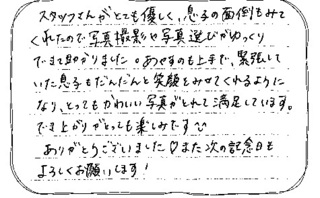 スタッフさんがとても優しく、息子の面倒もみて
くれたので写真撮影や写真選びがゆっくり
でき助かりました。あやすのも上手で、緊張して
いた息子もだんだんと笑顔もみせてくれるように
なり、とってもかわいい写真がとれて満足しています。
でき上がりがとっても楽しみです
ありがとうございました♡また次の記念日も
よろしくお願いします!